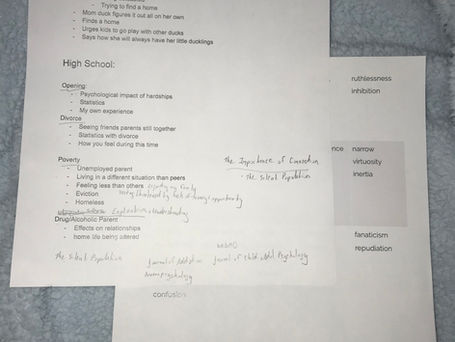 - Trying to find a home
- Mom duck figures it out all on her own
- Finds a home
- Urges kids to go play with other ducks
- Says how she will always have her little ducklings
High School:
Opening:
- Psychological impact of hardships
- Statistics
- My own experience
Divorce
- Seeing friends parents still together
- Statistics with divorce
- How you feel during this time
Poverty
- Unemployed parent
- Living in a different situation than peers
- Feeling less than others
- Eviction
- Homeless
Explanation + Understanding
Drug/Alcoholic Parent
- Effects on relationships
- home life being altered
The Silent Population
The Importance of Connection
- The Silent Population
WebMD
Journal of Addiction
Journal of Child + Adol. Psychology
Neuropsychology
ruthlessness
inhibition
narrow
virtuosity
inertia
fanaticism
repudiation
confusion